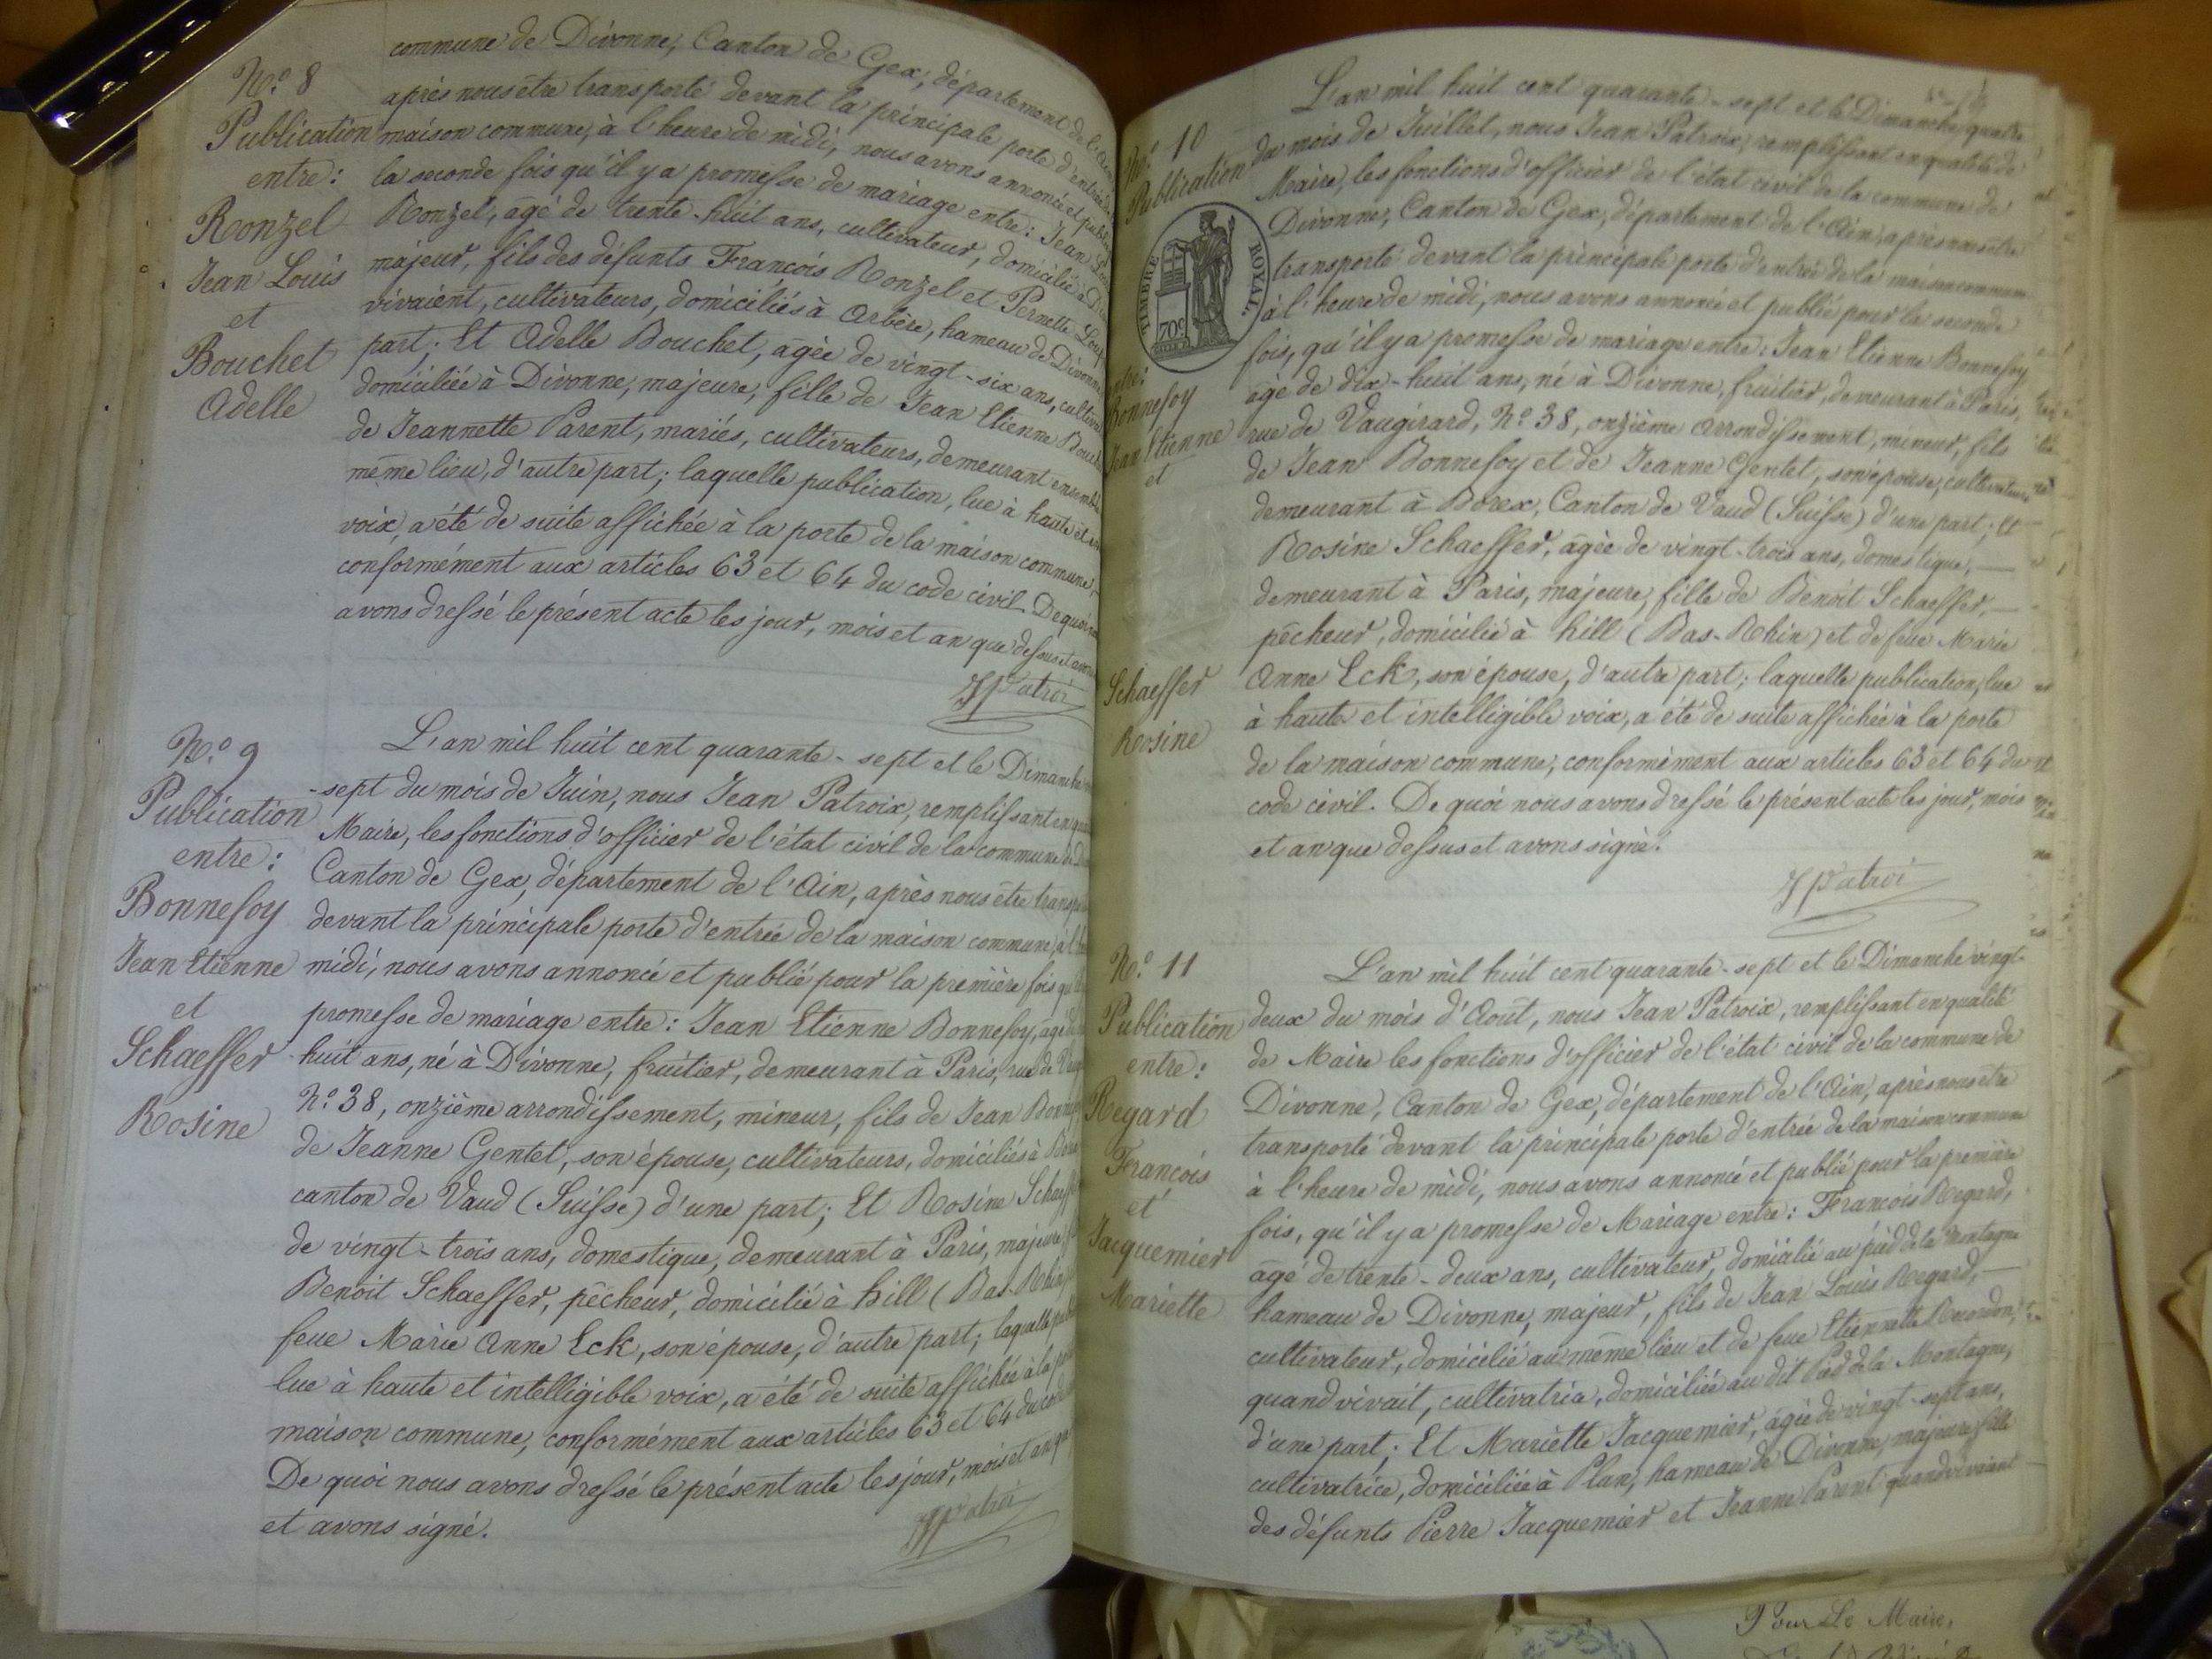 commune de Divonne, Canton de Gex, département de l'Ain
après nous être transporté devant la principale porte d'entrée de
maison commune, à l'heure de midi, nous avons annoncé et publié
la seconde fois qu'il y a promesse de mariage entre: Jean
Ronzel, agé de trente-huit ans, cultivateur, domicilié à
majeur, fils des défunts François Ronzel et Pernette
vivaient, cultivateurs, domiciliés à Arbère, hameau de Divonne
part; Et Adelle Bouchet, agée de vingt-six ans,
domiciliée à Divonne, majeure, fille de Jean Etienne
de Jeannette Parent, mariés, cultivateurs, demeurant
même lieu, d'autre part; laquelle publication, lue à haute et
voix, a été de suite affichée à la porte de la maison commune,
conformément aux articles 63 et 64 du code civil. De quoi
avons dressé le présent acte les jour, mois et an que dessus et
JPatroi
N.o 8
Publication
entre:
Ronzel
Jean Louis
et
Bouchet
Adelle
N.o 9
Publication
entre:
Bonnefoy
Jean Etienne
et
Schaeffer
Rosine
L'an mil huit cent quarante-sept et le Dimanche
-sept du mois de Juin, nous Jean Patroix, remplissant en
Maire, les fonctions d'officier de l'état civil de la commune de
Canton de Gex, département de l'Ain, après nous être
devant la principale porte d'entrée de la maison commune, à
midi, nous avons annoncé et publié pour la première fois
promesse de mariage entre: Jean Etienne Bonnefoy, agé
huit ans, né à Divonne, fruitier, demeurant à Paris, rue de
N.o 38, onzième arrondissement, mineur, fils de Jean
de Jeanne Gentet, son épouse, cultivateurs, domiciliés à
canton de Vaud (Suisse) d'une part; Et Rosine
de vingt-trois ans, domestique, demeurant à Paris, majeure
Benoit Schaeffer, pêcheur, domicilié à hill (Bas-Rhin)
feue Marie Anne Eck, son épouse, d'autre part; laquelle
lue à haute et intelligible voix, a été de suite affichée à la
maison commune, conformément aux articles 63 et 64 du
De quoi nous avons dressé le présent acte les jour, mois et an
et avons signé.
JPatroi
N.o 10
Publication
TIMBRE ROYAL.
70c
entre:
Bonnefoy
Jean Etienne
et
Schaeffer
Rosine
L'an mil huit cent quarante-sept et le Dimanche quatre
du mois de Juillet, nous Jean Patroix, remplissant en qualité de
Maire, les fonctions d'officier de l'état civil de la commune de
Divonne, Canton de Gex, département de l'Ain, après nous être
transporté devant la principale porte d'entrée de la maison commune
à l'heure de midi, nous avons annoncé et publié pour la seconde
fois, qu'il y a promesse de mariage entre: Jean Etienne Bonnefoy
agé de dix-huit ans, né à Divonne, fruitier, demeurant à Paris,
rue de Vaugirard, N.o 38, onzième arrondissement, mineur, fils
de Jean Bonnefoy et de Jeanne Gentet, son épouse, cultivateurs
demeurant à Borex, Canton de Vaud (Suisse) d'une part; Et
Rosine Schaeffer, agée de vingt-trois ans, domestique,
demeurant à Paris, majeure, fille de Benoit Schaeffer,
pêcheur, domicilié à hill (Bas-Rhin) et de feue Marie
Anne Eck, son épouse, d'autre part; laquelle publication, lue
à haute et intelligible voix, a été de suite affichée à la porte
de la maison commune, conformément aux articles 63 et 64 du
code civil. De quoi nous avons dressé le présent acte les jour, mois
et an que dessus et avons signé.
JPatroi
N.o 11
Publication
entre:
Regard
François
et
Jacquemier
Mariette
L'an mil huit cent quarante-sept et le Dimanche vingt-
deux du mois d'Août, nous Jean Patroix, remplissant en qualité
de Maire les fonctions d'officier de l'état civil de la commune de
Divonne, Canton de Gex, département de l'Ain, après nous être
transporté devant la principale porte d'entrée de la maison commune
à l'heure de midi, nous avons annoncé et publié pour la première
fois, qu'il y a promesse de Mariage entre: François Regard,
agé de trente-deux ans, cultivateur, domicilié au pied de la montagne
hameau de Divonne, majeur, fils de Jean Louis Regard,
cultivateur, domicilié au même lieu et de feue Etiennette
quand vivait, cultivatrice, domiciliée au dit Pied de la Montagne,
d'une part; Et Mariette Jacquemier, agée de vingt-sept ans,
cultivatrice, domiciliée à Plan, hameau de Divonne, majeure, fille
des défunts Pierre Jacquemier et Jeanne Parent quand vivaient
Pour Le Maire,